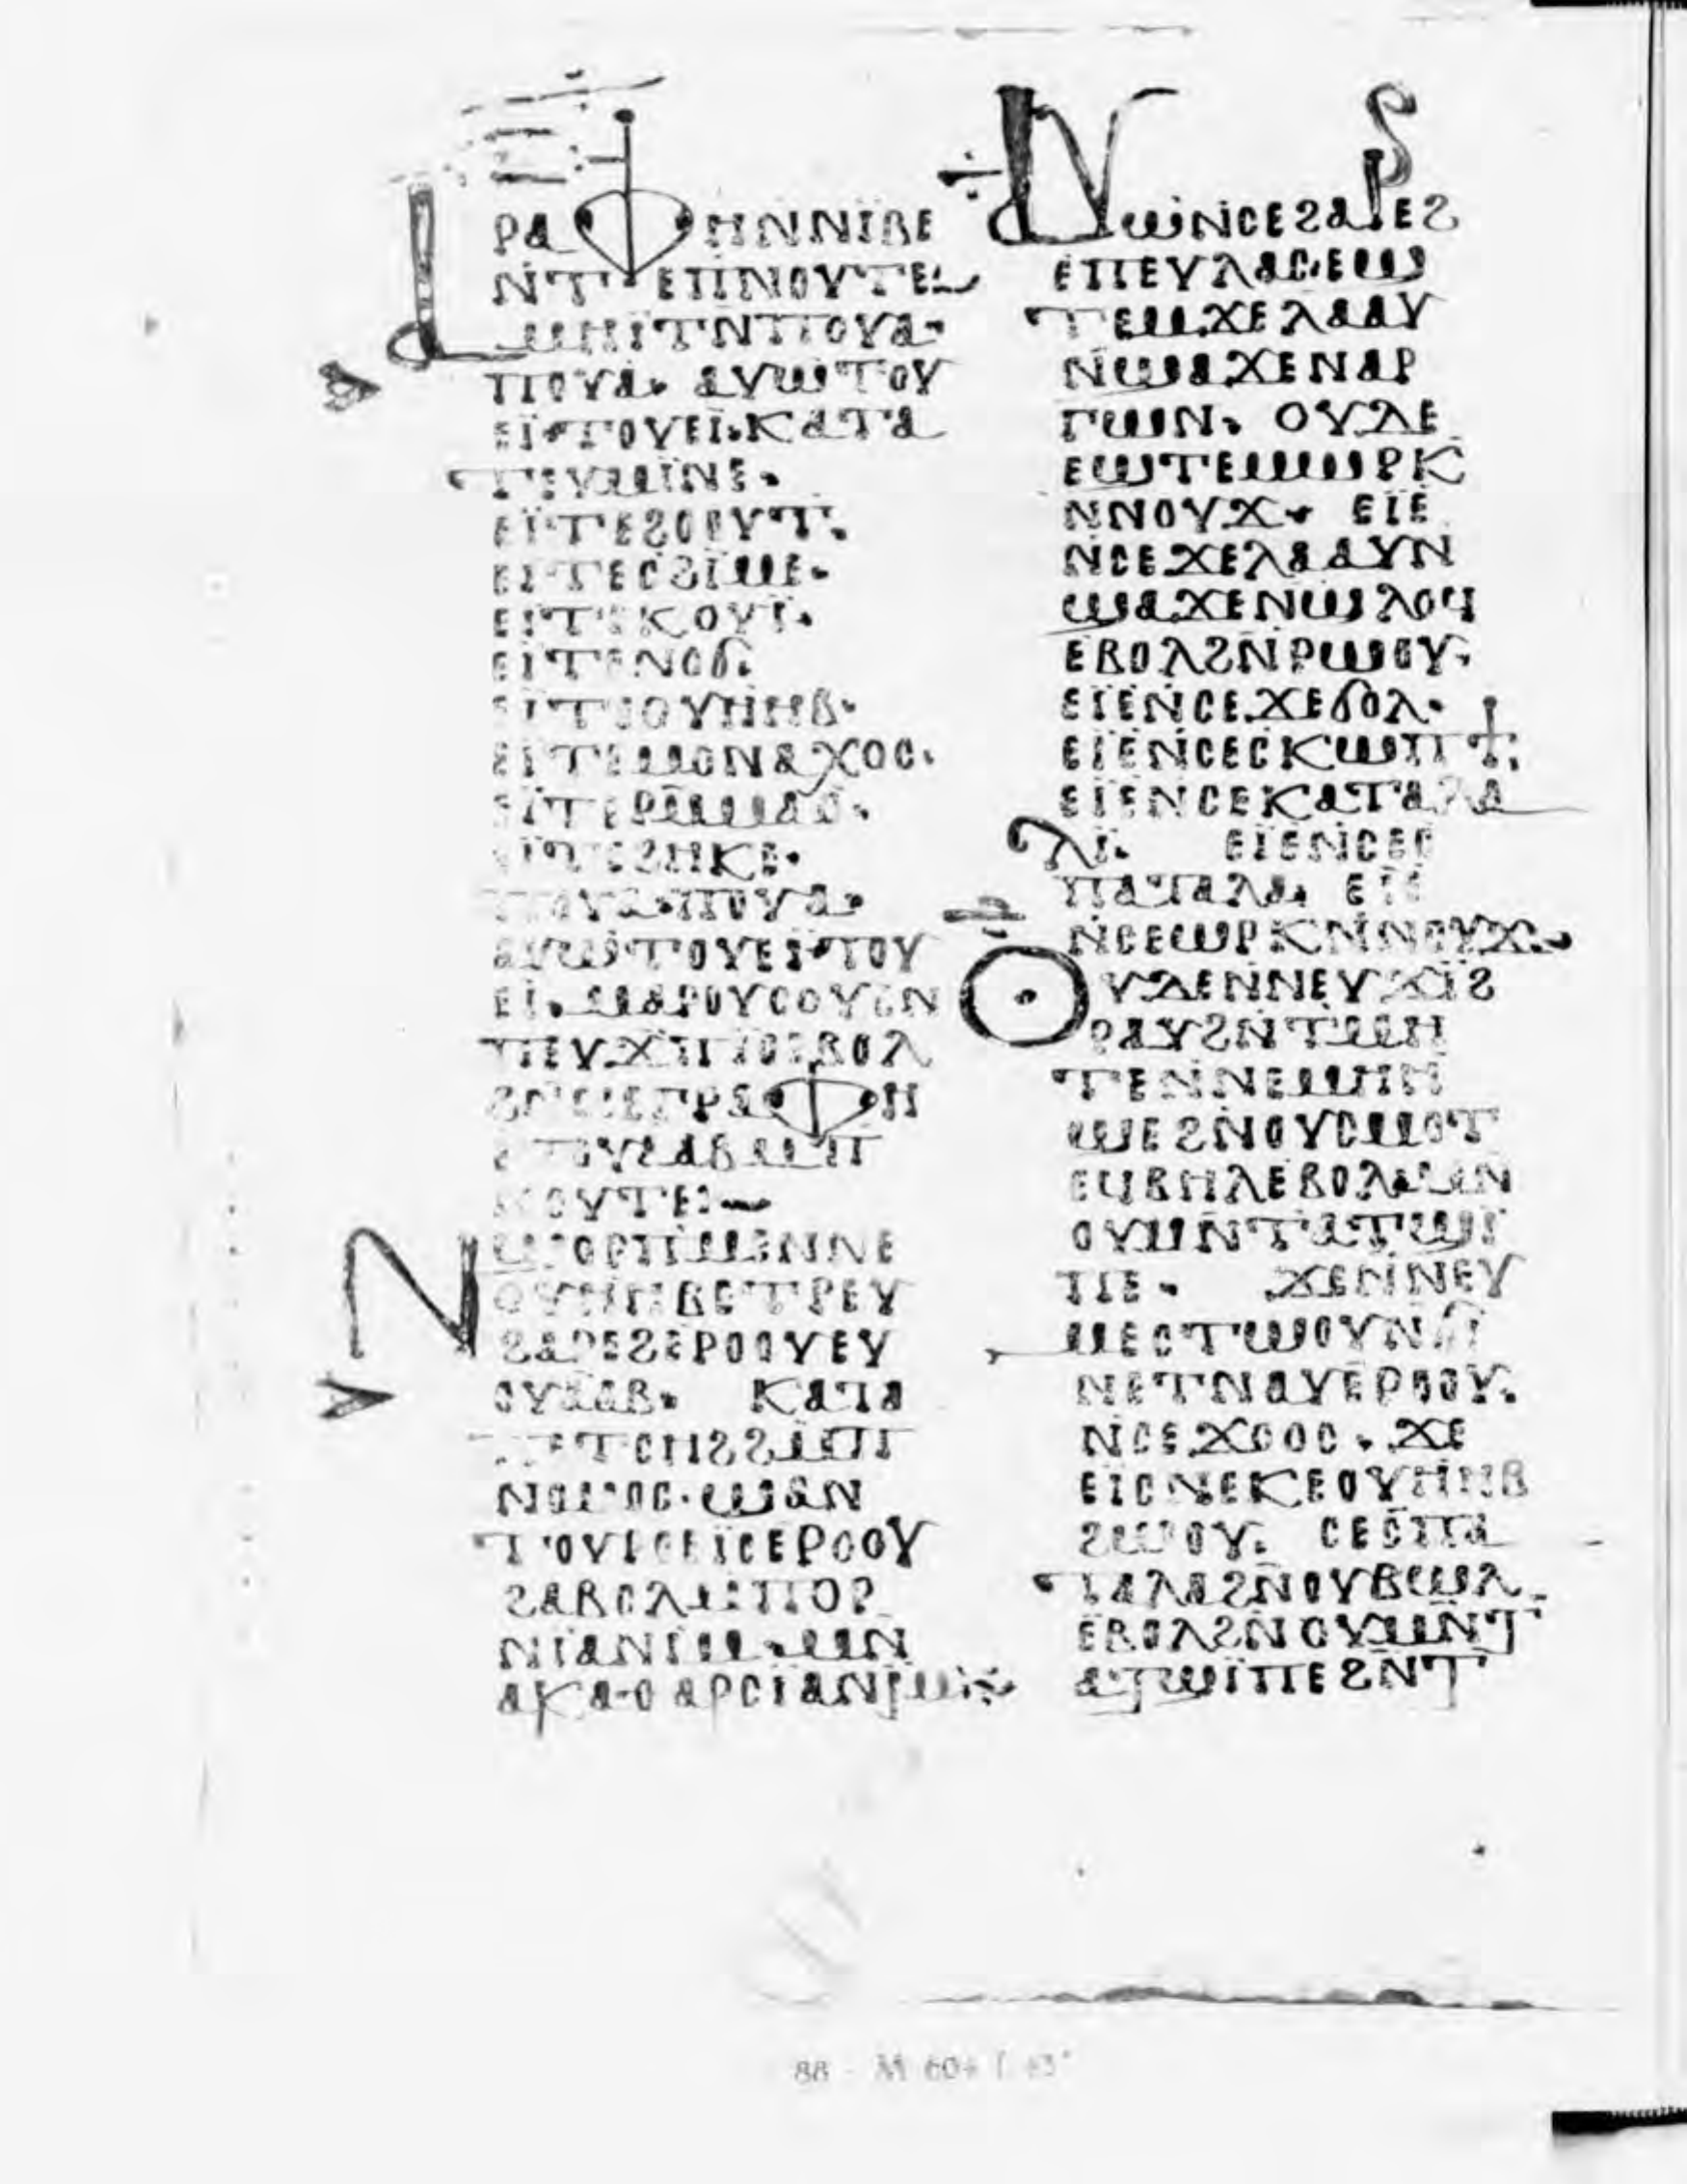 ⲣⲁⲫⲏⲛⲛⲓⲃⲉ
ⲛⲧ ⲉⲡⲛⲟⲩⲧⲉ
ⲙⲏⲓⲧⲛⲡⲟⲩⲁ·
ⲡⲟⲩⲁ· ⲁⲩⲱⲧⲟⲩ
ⲉⲓ·ⲧⲟⲩⲉⲓ·ⲕⲁⲧⲁ
ⲡⲉⲩⲙⲓⲛⲉ·
ⲉⲓⲧⲉϩⲟⲟⲩⲧ·
ⲉⲓⲧⲉⲥϩⲓⲙⲉ·
ⲉⲓⲧⲉⲕⲟⲩⲓ·
ⲉⲓⲧⲉⲛⲟϭ·
ⲉⲓⲧⲉⲟⲩⲏⲏⲃ·
ⲉⲓⲧⲉⲙⲟⲛⲁⲭⲟⲥ·
ⲉⲓⲧⲉⲣⲙⲙⲁⲟ·
ⲉⲓⲧⲉϩⲏⲕⲉ·
ⲡⲟⲩⲁ·ⲡⲟⲩⲁ·
ⲁⲩⲱⲧⲟⲩⲉⲓ·ⲧⲟⲩ
ⲉⲓ·ⲙⲁⲣⲟⲩⲥⲟⲩⲉⲛ
ⲡⲉⲩϫⲡⲓⲟⲉⲃⲟⲗ
ϩⲛⲛⲉⲅⲣⲁⲫⲏ
ⲉⲧⲟⲩⲁⲁⲃⲙⲡ
ⲛⲟⲩⲧⲉ:—
ϣⲟⲣⲡⲙⲉⲛⲛⲉ
ⲟⲩⲏⲏⲃⲉⲧⲣⲉⲩ
ϩⲁⲣⲉϩⲉⲣⲟⲟⲩⲉⲩ
ⲟⲩⲁⲁⲃ· ⲕⲁⲧⲁ
ⲡⲉⲧⲥⲏϩϩⲙⲡ
ⲛⲟⲙⲟⲥ·ϣⲁⲛ
ⲧⲟⲩⲣⲟⲉⲓⲥⲉⲣⲟⲟⲩ
ϩⲁⲃⲟⲗⲙⲡⲟⲣ
ⲛⲓⲁⲛⲓⲙ·ⲙⲛ
ⲁⲕⲁⲑⲁⲣⲥⲓⲁⲛⲓⲙ
ⲁⲩⲱⲛⲥⲉϩⲁⲣⲉϩ
ⲉⲡⲉⲩⲗⲁⲥ·ⲉϣ
ⲧⲉⲙϫⲉⲗⲁⲁⲩ
ⲛϣⲁϫⲉⲛⲁⲣ
ⲅⲱⲛ· ⲟⲩⲇⲉ
ⲉϣⲧⲉⲙⲱⲣⲕ
ⲛⲛⲟⲩϫ· ⲉⲓⲉ
ⲛⲥⲉϫⲉⲗⲁⲁⲩⲛ
ϣⲁϫⲉⲛϣⲗⲟϥ
ⲉⲃⲟⲗϩⲛⲣⲱⲟⲩ·
ⲉⲓⲉⲛⲥⲉϫⲉϭⲟⲗ·
ⲉⲓⲉⲛⲥⲉⲥⲕⲱⲡϯ·
ⲉⲓⲉⲛⲥⲉⲕⲁⲧⲁⲗⲁ
ⲗⲓ· ⲉⲓⲉⲛⲥⲉⲥ
ⲡⲁⲧⲁⲗⲁ· ⲉⲓⲉ
ⲛⲥⲉⲱⲣⲕⲛⲛⲟⲩϫ·
ⲟⲩⲇⲉⲛⲛⲉⲩϫⲓϩ
ⲣⲁⲩϩⲛⲧⲙⲏ
ⲧⲉⲛⲛⲉⲙⲏⲏ
ϣⲉϩⲛⲟⲩⲥⲙⲟⲧ
ⲉϥⲃⲏⲗⲉⲃⲟⲗⲙⲛ
ⲟⲩⲙⲛⲧⲁⲧϣⲓ
ⲡⲉ· ϫⲉⲛⲛⲉⲩ
ⲙⲉⲥⲧⲱⲟⲩⲛϭⲓ
ⲛⲉⲧⲛⲁⲩⲉⲣⲟⲟⲩ·
ⲛⲥⲉϫⲟⲟⲥ·ϫⲉ
ⲉⲓⲥⲛⲉⲕⲉⲟⲩⲏⲏⲃ
ϩⲱⲟⲩ· ⲥⲉⲥⲡⲁ
ⲧⲁⲗⲁϩⲛⲟⲩⲃⲱⲗ
ⲉⲃⲟⲗϩⲛⲟⲩⲙⲛⲧ
ⲁⲧϣⲓⲡⲉϩⲛⲧ